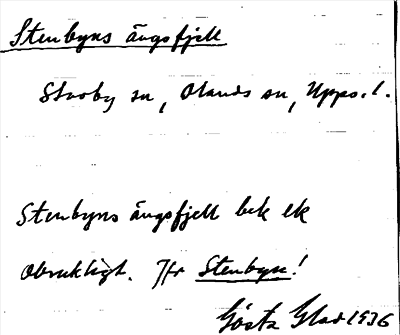 Stenbyns ängsfjell
Skoby sn, Olands sn, Upps.l.
Stenbyns ängsfjell bek ek
obrukligt. Jfr Stenbyn!
Gösta Glad 1936